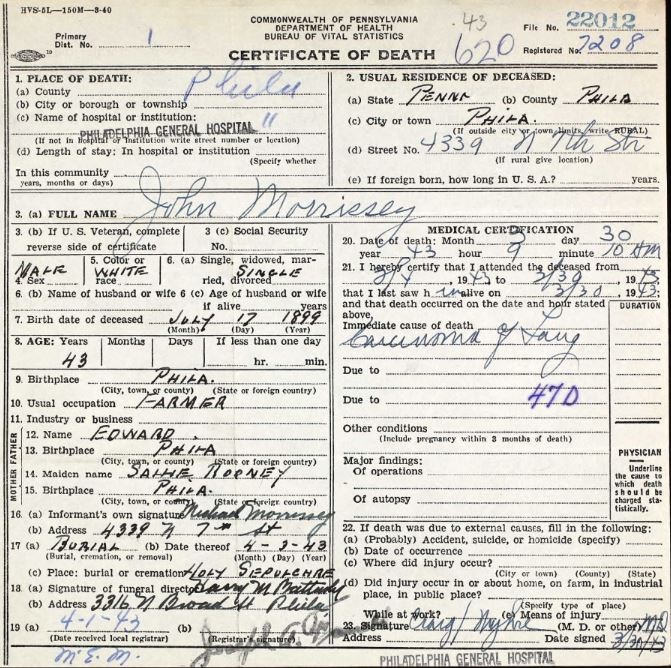 HVS-5L—150M—3-40
COMMONWEALTH OF PENNSYLVANIA
DEPARTMENT OF HEALTH
BUREAU OF VITAL STATISTICS
CERTIFICATE OF DEATH
Primary
Dist. No. 1
43
620
File No. 22012
Registered No. 7208
1. PLACE OF DEATH:
(a) County Phila
(b) City or borough or township "
(c) Name of hospital or institution:
PHILADELPHIA GENERAL HOSPITAL
(If not in hospital or institution write street number or location)
(d) Length of stay: In hospital or institution
(Specify whether
In this community
years, months or days)
2. USUAL RESIDENCE OF DECEASED:
(a) State PENNA (b) County PHILA
(c) City or town PHILA.
(If outside city or town limits, write RURAL)
(d) Street No. 4339 N 7th Str
(If rural give location)
(e) If foreign born, how long in U. S. A.? years.
3. (a) FULL NAME John Morrissey
3. (b) If U. S. Veteran, complete
reverse side of certificate
3 (c) Social Security
No.
4. Sex MALE
5. Color or race WHITE
6. (a) Single, widowed, married, divorced SINGLE
6. (b) Name of husband or wife 6 (c) Age of husband or wife
if alive years
7. Birth date of deceased JULY 17 1899
(Month) (Day) (Year)
8. AGE: Years Months Days If less than one day
43 hr. min.
9. Birthplace PHILA.
(City, town, or county) (State or foreign country)
10. Usual occupation FARMER
11. Industry or business
MOTHER FATHER
12. Name EDWARD
13. Birthplace PHILA
(City, town, or county) (State or foreign country)
14. Maiden name SALLIE ROONEY
15. Birthplace PHILA.
(City, town, or county) (State or foreign country)
16. (a) Informant's own signature Michael Morrissey
(b) Address 4339 N 7th St
17. (a) BURIAL (b) Date thereof 4 3-43
(Burial, cremation, or removal) (Month) (Day) (Year)
(c) Place: burial or cremation HOLY SEPULCHRE
18. (a) Signature of funeral director Harry M
(b) Address 3316 N Broad St Phila
19 (a) 4-1-43 (b) Joseph
(Date received local registrar) (Registrar's signature)
M.E.M.
MEDICAL CERTIFICATION
20. Date of death: Month 3 day 30
year 43 hour 9 minute 10 AM
21. I hereby certify that I attended the deceased from
1943 to 3/30, 1943
that I last saw h im alive on 3/30, 1943
and that death occurred on the date and hour stated
above.
DURATION
Immediate cause of death
Carcinoma of Lung
Due to
Due to 47D
Other conditions
(Include pregnancy within 3 months of death)
Major findings:
Of operations
Of autopsy
PHYSICIAN
Underline
the cause to
which death
should be
charged sta-
tistically.
22. If death was due to external causes, fill in the following:
(a) (Probably) Accident, suicide, or homicide (specify)
(b) Date of occurrence
(c) Where did injury occur?
(City or town) (County) (State)
(d) Did injury occur in or about home, on farm, in industrial
place, in public place?
(Specify type of place)
While at work? (e) Means of injury
23. Signature (M. D. or other) MD
Address Date signed 3/30/43
PHILADELPHIA GENERAL HOSPITAL